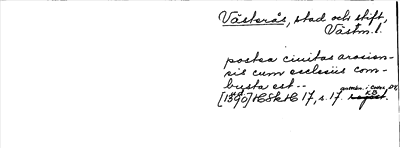 Västerås, stad och stift,
Västm.l.
postea civitas arosien-
sis cum ecclesiis com-
busta est --
[1390] HSkH 17, s. 17.